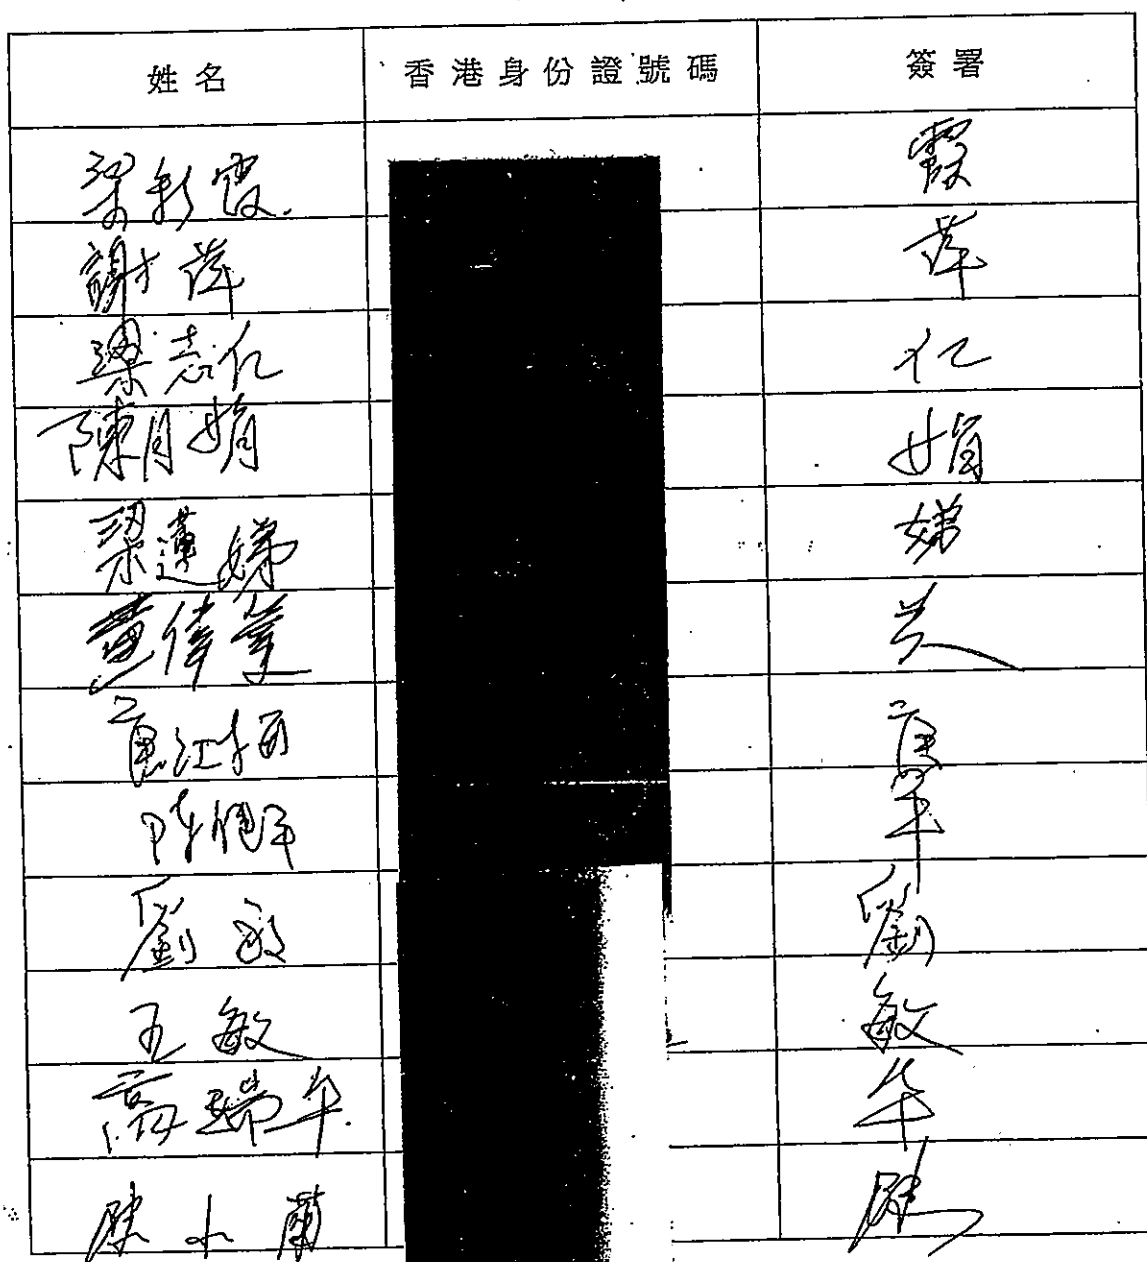 姓名 香港身份證號碼 簽署
梁彩霞 霞
謝萍 萍
梁志仁 仁
陳月娟 娟
梁蓮娣 娣
黃偉
江
陳
劉 劉
王敏 敏
高瑞年 年
陳小蘭 陳